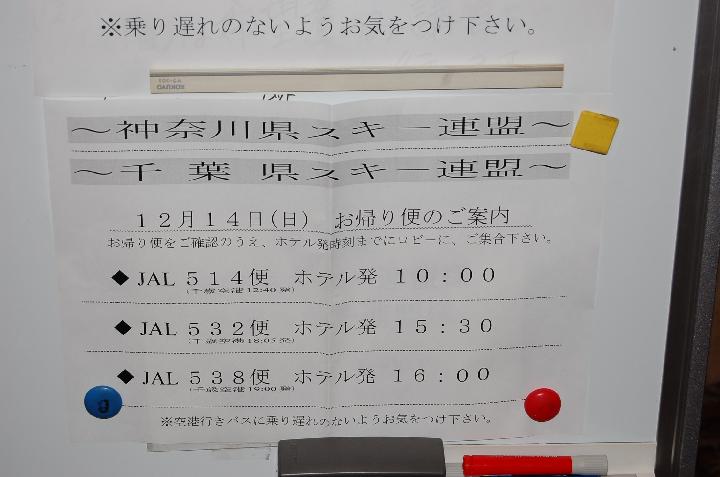 ※乗り遅れのないようお気をつけ下さい。
KOKUYO
～神奈川県スキー連盟～
～千葉県スキー連盟～
１２月１４日(日)　お帰り便のご案内
お帰り便をご確認のうえ、ホテル発時刻までにロビーに、ご集合下さい。
◆ JAL ５１４便　ホテル発 １０：００
(千歳空港12:40発)
◆ JAL ５３２便　ホテル発 １５：３０
(千歳空港18:05発)
◆ JAL ５３８便　ホテル発 １６：００
(千歳空港19:00発)
※空港行きバスに乗り遅れのないようお気をつけ下さい。